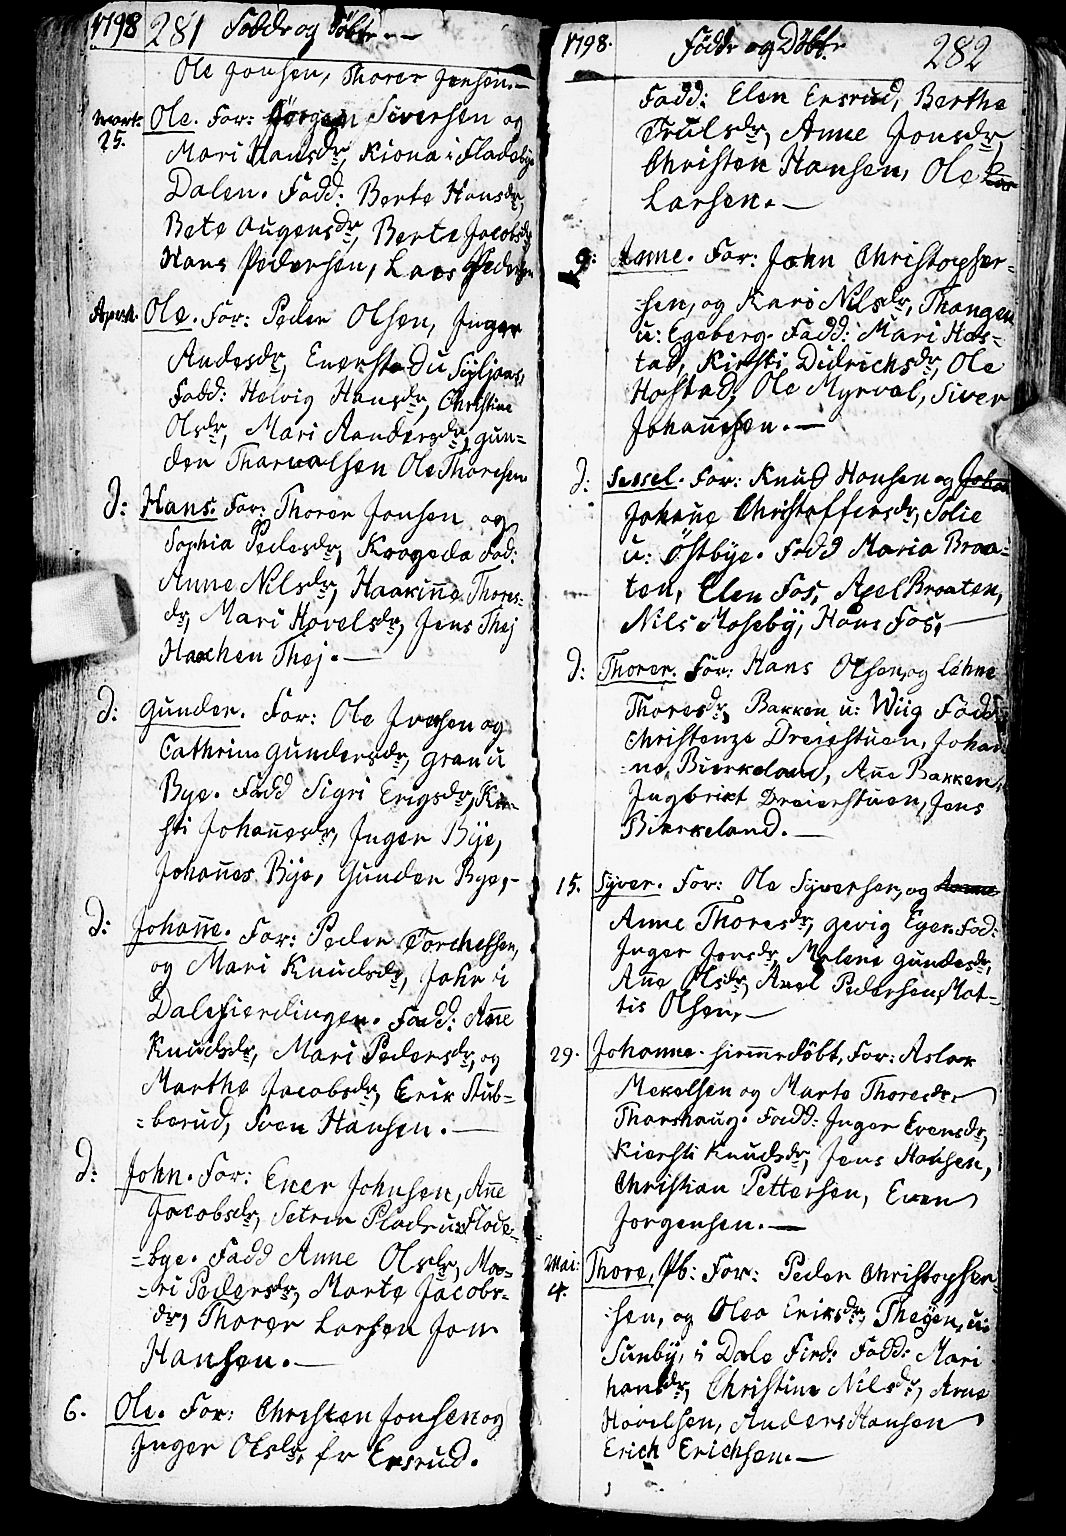 1798 281 Födde og Döbte.—
Ole Jonsen, Thorer Jensen.—
Mart: 25. Ole. For: Jörgen Siversen og
Mari Hansdr, Kiona i Fladebye
Dalen. Fadd: Berte Hansdr,
Bete Augensdr, Berte Jacobsdr
Hans Pedersen, Lars Pedersen
Ole. For: Peder Olsen, Inger
Andesdr, Enersta Du
Fadd: Helvig Hansdr, Christine
Olsdr, Mari Aandersdr, Gun=
der Tharualsen Ole Thoresen
D: Hans. For: Thorer Jonsen og
Sophia Pedesdr, Krogeda Fad:
Anne Nilsdr, Haakinne Thores=
dr, Mari Hovelsdr, Jens Thej
Haachen Thej.—
D: Gunder. For: Ole og
Cathrine Gundersdr, Gran u
Bye. Fadd Sigri Erigsdr, Kir=
sti Johañesdr, Inger Bije,
Johañes Bije, Gunder Bye,—
D: Johañe. For: Peder Torchelsen,
og Mari Knudsdr, John i
Dalefierdingen. Fadd: Añe
Knudsdr, Mari Pedersdr, og
Marthe Jacobsdr, Erik Stub=
=berud, Sven Hansen.—
D: John. For: Ener Johnsen, Añe
Jacobsdr, Setren Flode=
=bye. Fadd Anne Olsdr, Ma=
=ri Pedersdr, Marte Jacobs=
dr, Thorer Larsen Jon
Hansen.—
6. Ole. For: Christen Jonsen og
Inger Olsdr, fr Ersrud.
1798. Födde og Döbte 282
Fadd: Elen Ersrud, Berthe
Trulsdr, Anne Jonsdr,
Christen Hansen, Ole
Larsen.—
9: Anne. For: John Christopher=
=sen, og Kari Nilsdr, Thangen
u: Egeberg. Fadd: Mari Hos=
tad, Kirsti Didrichsdr, Ole
Hofstad, Ole Myrval, Siver
Johañesen.—
D: Sessel. For: Knud Hansen og Joha
Johañe Christoffersdr, Solie
u: Östbye. Fadd Maria Braa=
ten, Elen Fos, Axel Braaten,
Nils Moseby, Hans Fos,—
D: Thorer. For: Hans Olsen, og Lehne
Thoresdr, Bakken u: Wiig Fadd:
Christenze Dreierstuen, Johan
=ne Bierkeland, Añe Bakken,
Ingbrikt Dreierstuen, Jens
Bierkeland.—
15. Syver. For: Ole Syversen, og Anne
Anne Thoresdr, Gevig Eger. Fad:
Inger Jonsdr, Malene Gundesdr,
Añe Olsdr, Axel Pedersen, Mat=
tis Olsen,—
29. Johanne. hiemmedöbt, For: Aslak
Mekelsen og Marte Thoresdr,
Thorshaug. Fadd: Inger Evensdr,
Kiersti Knudsdr, Jens Hansen,
Christian Pettersen, Even
Jorgensen.—
Mai: 4. Thore, For: Peder Christopher=
sen, og Oleo Eriksdr, Theyen, u:
Sunby, i Dale Fird: Fadd: Mari
hansdr, Christine Nilsdr, Arne
Hövelsen, Anders Hansen
Erich Erichsen.—